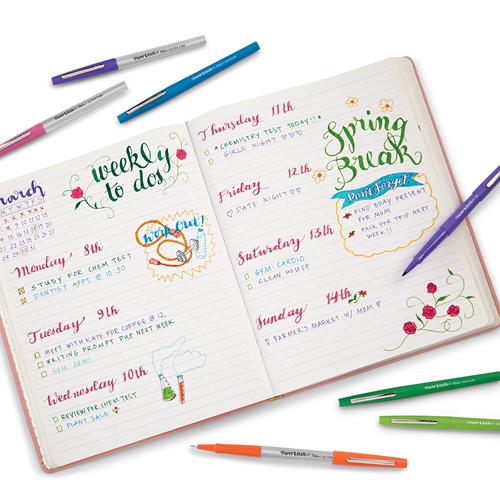 march
weekly
to dos!
Monday 8th
STUDY FOR CHEM TEST
DENTIST APPT. @ 10:30
work out!
Tuesday 9th
MEET WITH KATE FOR COFFEE @ 12
WRITING PROMPT DUE NEXT WEEK
GYM: ARMS
Wednesday 10th
REVIEW FOR CHEM TEST
PLANT SALE
Thursday 11th
*CHEMISTRY TEST TODAY!!*
GIRLS NIGHT ♡♡♡
Friday 12th
♡ DATE NIGHT ♡♡
Saturday 13th
GYM: CARDIO
CLEAN HOUSE
Sunday 14th
♡ FARMER'S MARKET W/ MOM ♡
Spring
Break
Don't Forget:
FIND BDAY PRESENT
FOR MOM
PACK FOR TRIP NEXT
WEEK!!
Paper Mate
Paper Mate
Paper Mate
Paper Mate
Paper Mate
Paper Mate
Paper Mate